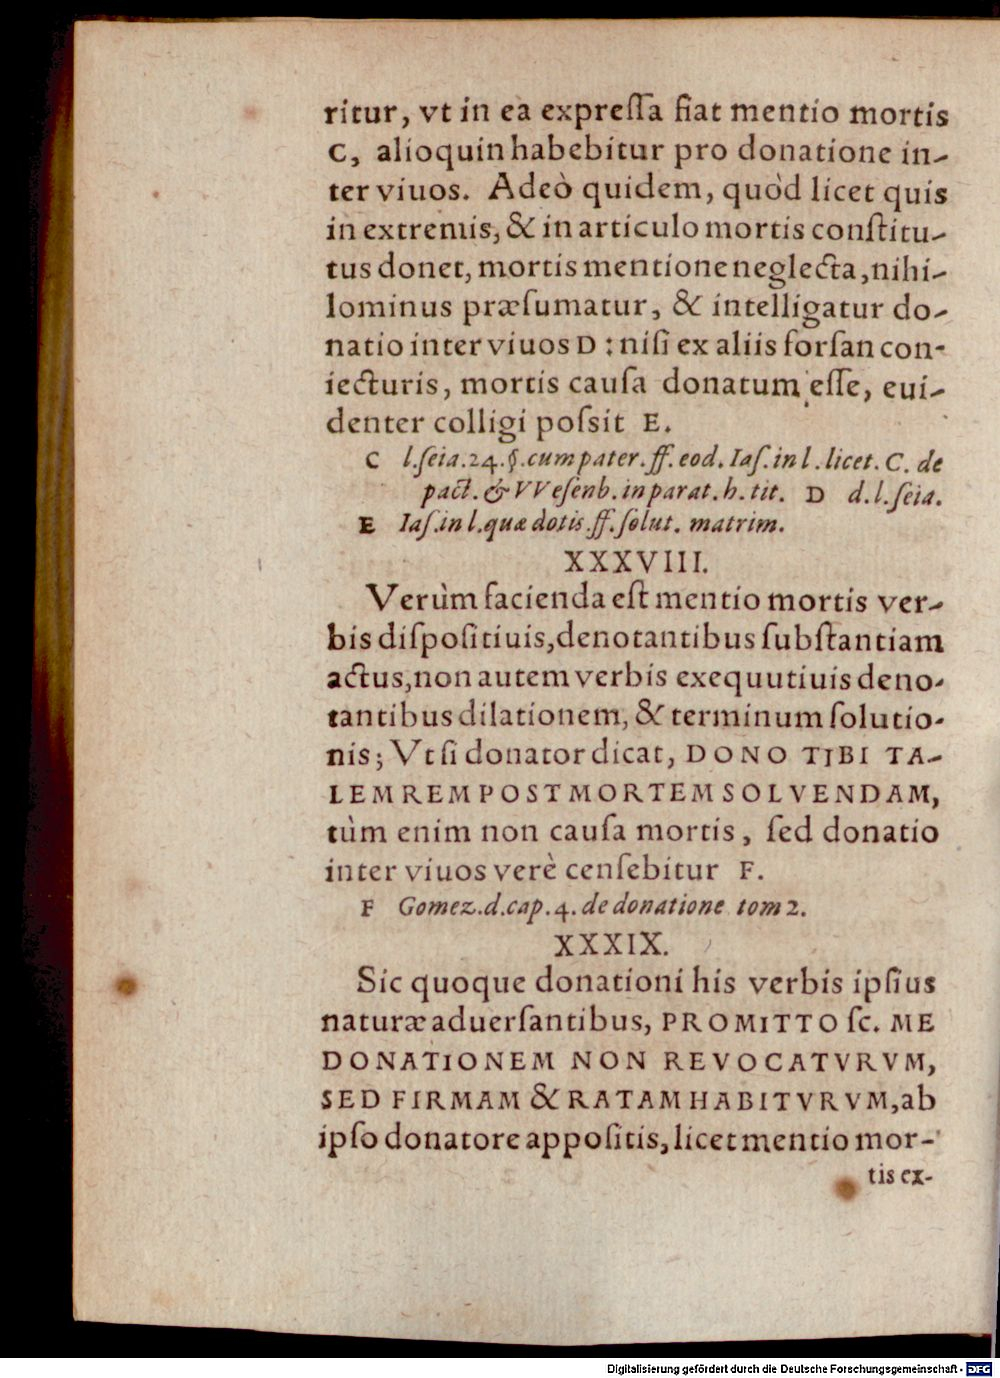 ritur, vt in ea expreſſa fiat mentio mortis
C, alioquin habebitur pro donatione in-
ter viuos. Adeò quidem, quòd licet quis
in extremis, & in articulo mortis conſtitu-
tus donet, mortis mentione neglecta, nihi-
lominus præſumatur, & intelligatur do-
natio inter viuos D : niſi ex aliis forſan con-
iecturis, mortis cauſa donatum eſſe, eui-
denter colligi poſsit E.
C l. ſeia. 24. §. cum pater. ff. eod. Iaſ. in l. licet. C. de
pact. & VVeſenb. in parat. h. tit. D d. l. ſeia.
E Iaſ. in l. quæ dotis. ff. ſolut. matrim.
XXXVIII.
Verùm facienda eſt mentio mortis ver-
bis diſpoſitiuis, denotantibus ſubſtantiam
actus, non autem verbis exequutiuis deno-
tantibus dilationem, & terminum ſolutio-
nis; Vt ſi donator dicat, DONO TIBI TA-
LEM REM POST MORTEM SOLVENDAM,
tùm enim non cauſa mortis, ſed donatio
inter viuos verè cenſebitur F.
F Gomez. d. cap. 4. de donatione tom 2.
XXXIX.
Sic quoque donationi his verbis ipſius
naturæ aduerſantibus, PROMITTO ſc. ME
DONATIONEM NON REVOCATVRVM,
SED FIRMAM & RATAM HABITVRVM, ab
ipſo donatore appoſitis, licet mentio mor-
tis ex-
Digitalisierung gefördert durch die Deutsche Forschungsgemeinschaft - DFG